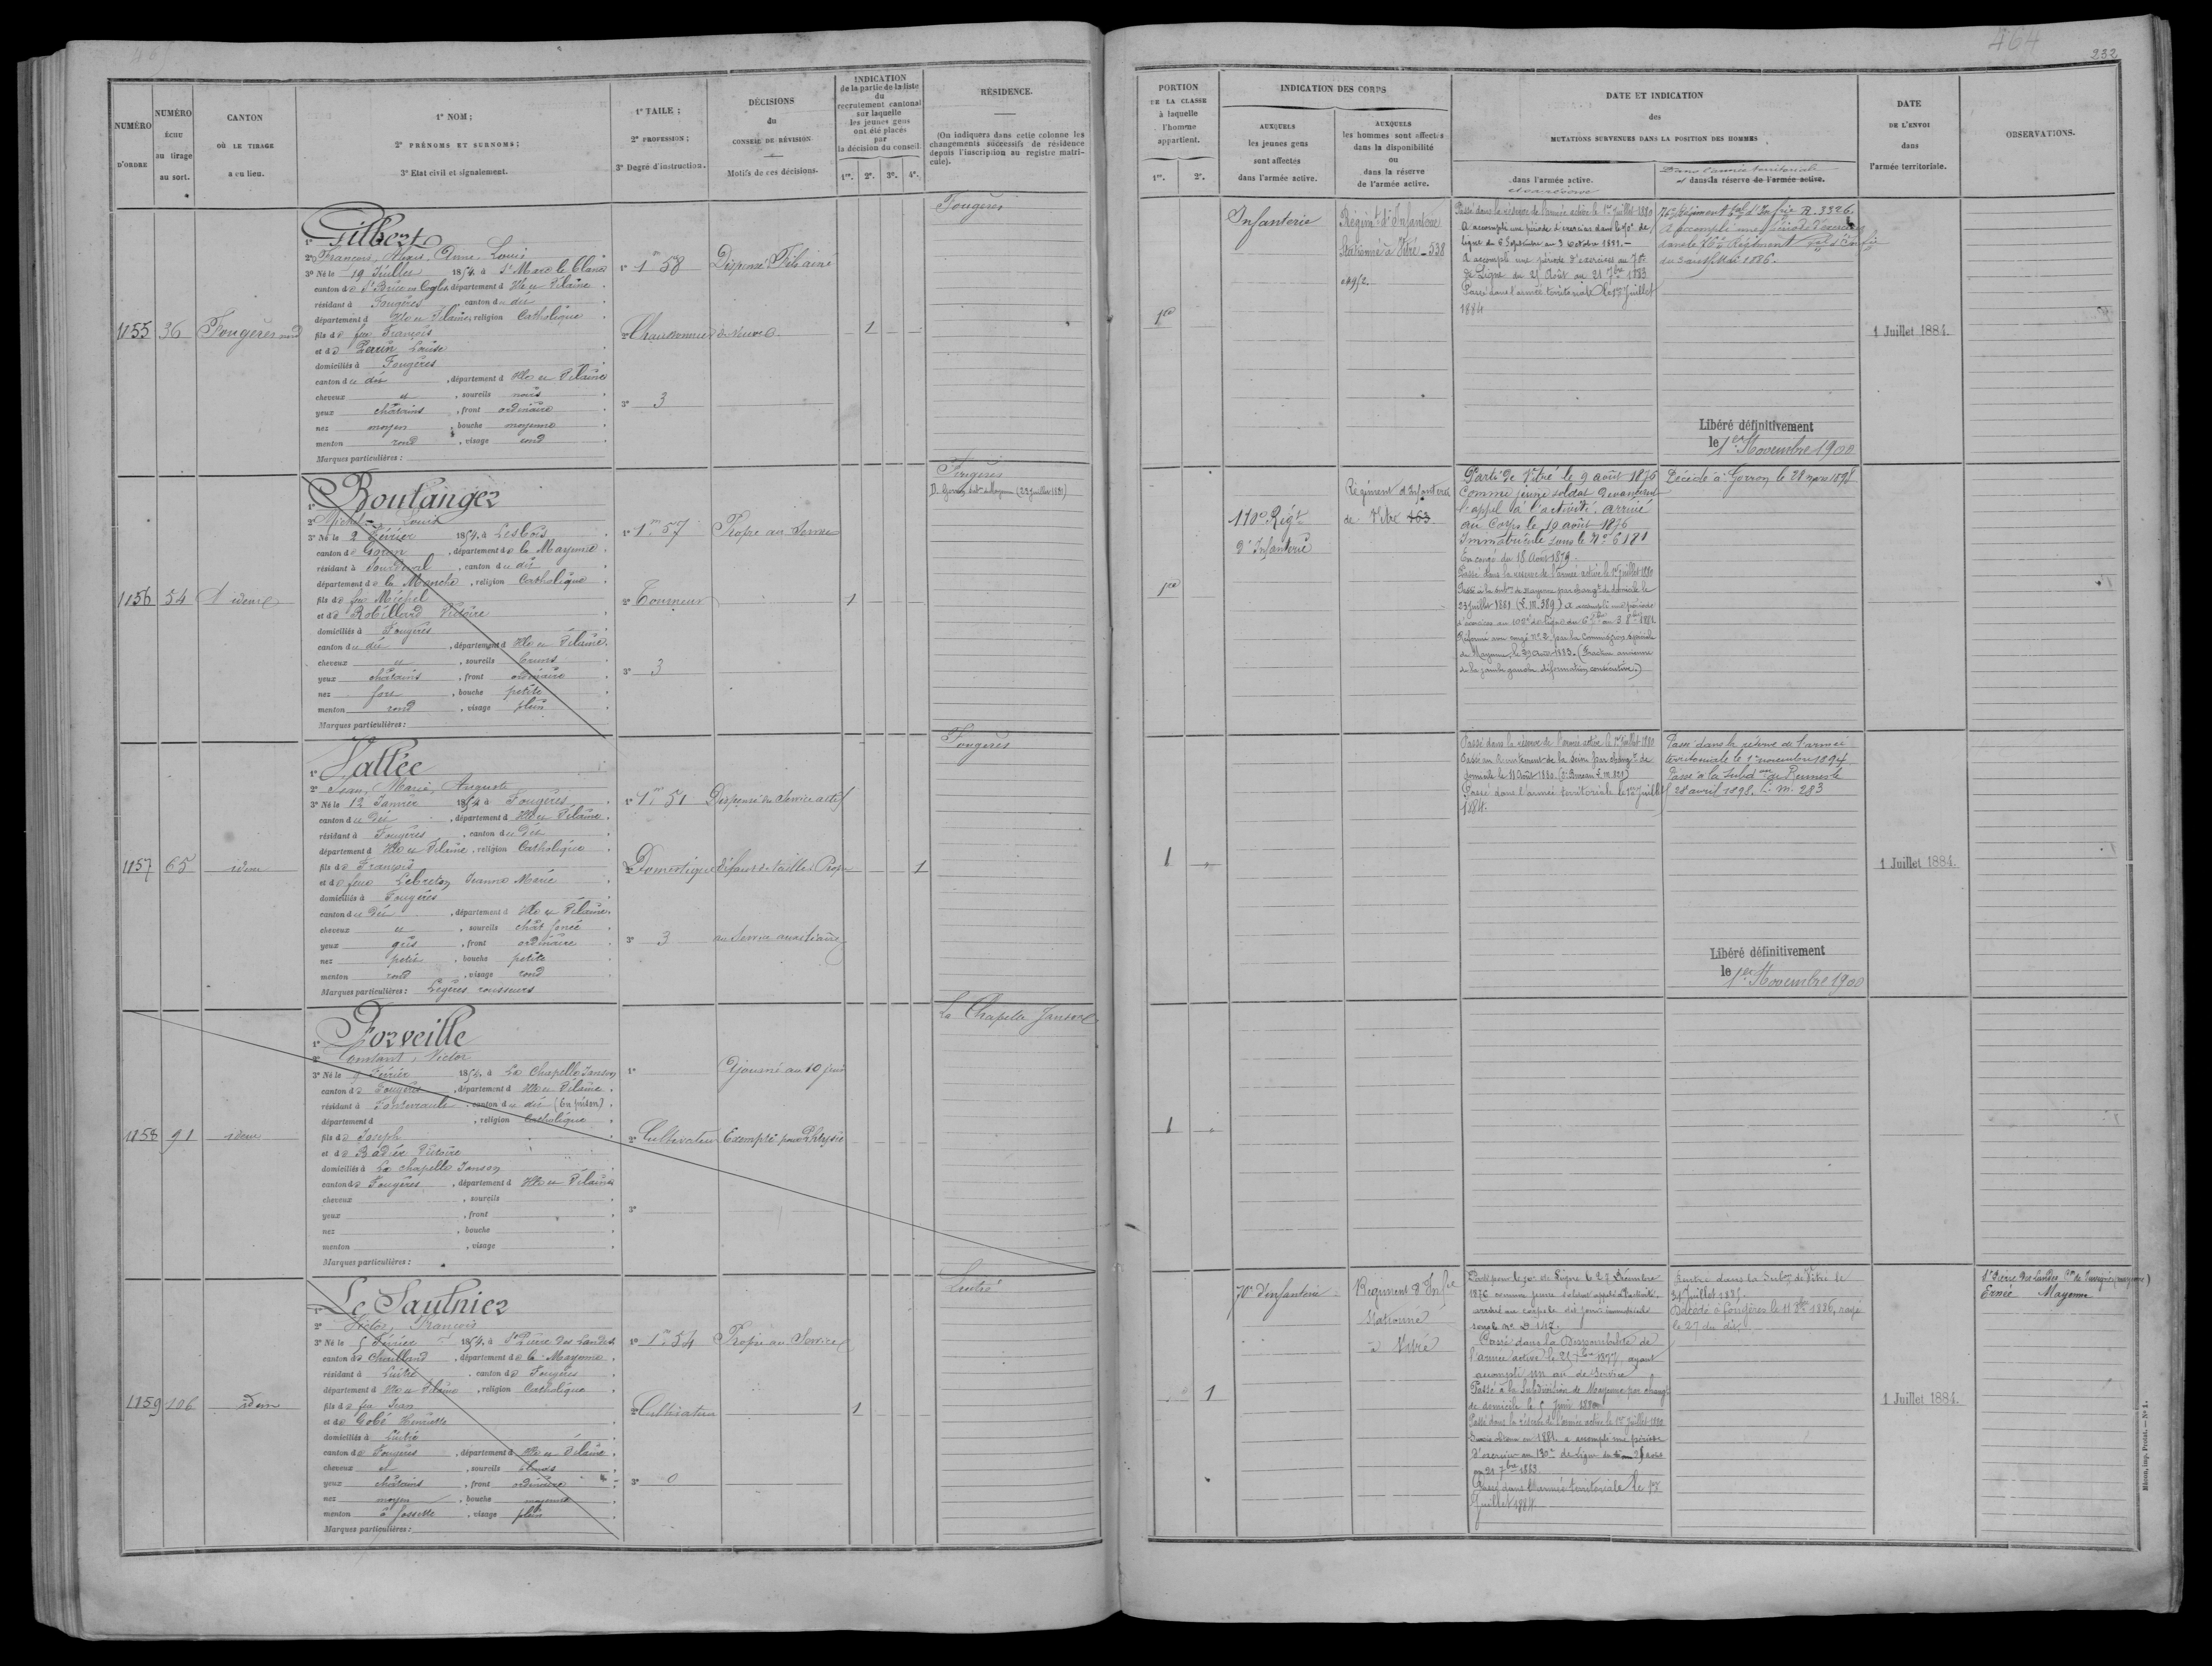 464
232
NUMÉRO
D'ORDRE
NUMÉRO
ÉCHU
au tirage
au sort.
CANTON
OÙ LE TIRAGE
a eu lieu.
1° NOM ;
2° PRÉNOMS ET SURNOMS ;
3° Etat civil et signalement.
1° TAILE ;
2° PROFESSION ;
3° Degré d'instruction.
DÉCISIONS
du
CONSEIL DE RÉVISION
Motifs de ces décisions.
INDICATION
de la partie de la liste
du
recrutement cantonal
sur laquelle
les jeunes gens
ont été placés
par
la décision du conseil.
1re. 2e. 3e. 4e.
RÉSIDENCE.
(On indiquera dans cette colonne les
changements successifs de résidence
depuis l'inscription au registre matri-
cule).
PORTION
DE LA CLASSE
à laquelle
l'homme
appartient.
1re. 2e.
INDICATION DES CORPS
AUXQUELS
les jeunes gens
sont affectés
dans l'armée active.
AUXQUELS
les hommes sont affectés
dans la disponibilité
ou
dans la réserve
de l'armée active.
DATE ET INDICATION
des
MUTATIONS SURVENUES DANS LA POSITION DES HOMMES
dans l'armée active.
et en réserve
Dans l'armée territoriale
et dans la réserve de l'armée active.
DATE
DE L'ENVOI
dans
l'armée territoriale.
OBSERVATIONS.
1155 36 Fougères nord
1° Gilbert
2° François, Alexis, Anne, Louis
3° Né le 19 Juillet 1854, à St Marc le Blanc
canton de St Brice en Cogles, département d'Ille et Vilaine
résidant à Fougères, canton du dit
département d'Ille et Vilaine, religion Catholique
fils de feu François
et de Perrin Louise
domiciliés à Fougères
canton du dit, département d'Ille et Vilaine
cheveux et, sourcils noirs
yeux châtains, front ordinaire
nez moyen, bouche moyenne
menton rond, visage rond
Marques particulières :
1° 1m 58
2° Chaudronnier
3° 3
Dispensé Fils aîné
de veuve
1
Fougères
1re
Infanterie
Régimt d'Infanterie
Stationné à Vitré - 538
Passé dans la réserve de l'armée active le 1er Juillet 1880
A accompli une période d'exercices dans le 70e de
ligne du 6 Septembre au 3 Octobre 1881.
A accompli une période d'exercices au 70e
de Ligne du 25 Août au 21 7bre 1883
Passé dans l'armée territoriale le 1er Juillet
1884
76e Régiment tal d'Infrie R. 3326.
A accompli une période d'exercices
dans le 76e Régiment tal d'Infrie
1886.
Libéré définitivement
le 1er Novembre 1900
1 Juillet 1884.
1156 54 idem
1° Boulanger
2° Michel, Louis
3° Né le 2 Février 1854, à Lesbois
canton de Goron, département de la Mayenne
résidant à Sourdeval, canton du dit
département de la Manche, religion Catholique
fils de feu Michel
et de Robillard Victoire
domiciliés à Fougères
canton du dit, département d'Ille et Vilaine
cheveux et, sourcils bruns
yeux châtains, front ordinaire
nez fort, bouche petite
menton rond, visage plein
Marques particulières :
1° 1m 57
2° Tourneur
3° 3
Propre au Service
1
Fougères
D. Gorron subd. de Mayenne (23 Juillet 1881)
1re
110e Régt
d'Infanterie
Régiment d'Infanterie
de Vitré 463
Parti de Vitré le 9 août 1876
Comme jeune soldat devançant
l'appel à l'activité, arrivé
au Corps le 10 août 1876
Immatriculé sous le No 6181
En congé du 18 Août 1879
Passé dans la réserve de l'armée active le 1er Juillet 1880
Passé à la subon de Mayenne par changt de domicile le
23 Juillet 1881 (L. M. 389) A accompli une période
d'exercices au 102e de ligne du 6 7bre au 3 8bre 1881
Réformé non congé No 2 par la Commission spéciale
de Mayenne, le 1883. (Fracture ancienne
de la jambe gauche déformation consécutive.)
Décédé à Gorron le 28 mars 1898
1157 65 idem
1° Vallée
2° Jean, Marie, Auguste
3° Né le 12 Janvier 1854 à Fougères
canton du dit, département d'Ille et Vilaine
résidant à Fougères, canton du dit
département d'Ille et Vilaine, religion Catholique
fils de François
et de feue Lebreton Jeanne Marie
domiciliés à Fougères
canton du dit, département d'Ille et Vilaine
cheveux et, sourcils chât foncé
yeux gris, front ordinaire
nez petit, bouche petite
menton rond, visage rond
Marques particulières : Légères rousseurs
1° 1m 51
2° Domestique
3° 3
Dispensé du service actif
défaut de taille Propre
au Service auxiliaire
1
Fougères
1
Passé dans la réserve de l'armée active le 1er Juillet 1880
Passé au Recrutement de la Seine par changt de
domicile le 11 Août 1880 (3e Bureau L. M. 821)
Passé dans l'armée territoriale le 1er Juillet
1884.
Passé dans la réserve de l'armée
territoriale le 1er novembre 1894
Passé à la Subdon de Rennes le
28 avril 1898. L. M. 283
Libéré définitivement
le 1er Novembre 1900
1 Juillet 1884.
1158 91 idem
1° Forveille
2° Constant, Victor
3° Né le 9 Février 1854, à La Chapelle Janson
canton de Fougères, département d'Ille et Vilaine
résidant à Fontevrault, canton du dit (en prison)
département d, religion Catholique
fils de Joseph
et de Badier Victoire
domiciliés à La chapelle Janson
canton de Fougères, département d'Ille et Vilaine
cheveux, sourcils
yeux, front
nez, bouche
menton, visage
Marques particulières :
1°
2° Cultivateur
3°
Ajourné au 10 juin
Exempté pour Phtysie
La Chapelle Janson
1
1159 106 idem
1° Le Saulnier
2° Victor, François
3° Né le 5 Février 1854, à St Pierre des Landes
canton de Chailland, département de la Mayenne
résidant à Luitré, canton de Fougères
département d'Ille et Vilaine, religion Catholique
fils de feu Jean
et de Gobé Henriette
domiciliés à Luitré
canton de Fougères, département d'Ille et Vilaine
cheveux et, sourcils blonds
yeux châtains, front ordinaire
nez moyen, bouche moyenne
menton à fossette, visage plein
Marques particulières :
1° 1m 54
2° Cultivateur
3° 0
Propre au Service
1
Luitré
1
70e d'infanterie
Régiment d'Infie
Stationné
à Vitré
Parti pour le 70e de Ligne le 27 Décembre
1876 comme jeune soldat appelé à l'activité.
arrivé au corps le dit jour immatriculé
sous le No D 147.
Passé dans la Disponibilité de
l'armée active le 25 7bre 1877, ayant
accompli un an de Service
Passé à la Subdivision de Mayenne par changt
de domicile le 5 Juin 1880
Passé dans la réserve de l'armée active le 1er Juillet 1880
en 1881 a accompli une période
d'exercices au 130e de Ligne du 25 août
au 21 7bre 1883.
Passé dans l'armée territoriale le 1er
Juillet 1884.
Rentré dans la Subon de Vitré le
Juillet 1885.
Décédé à fougères le 11 8bre 1886, rayé
le 27 du dit.
1 Juillet 1884.
St Pierre des Landes
Ernée Mayenne
Mézon, imp. Pontet. — No 1.